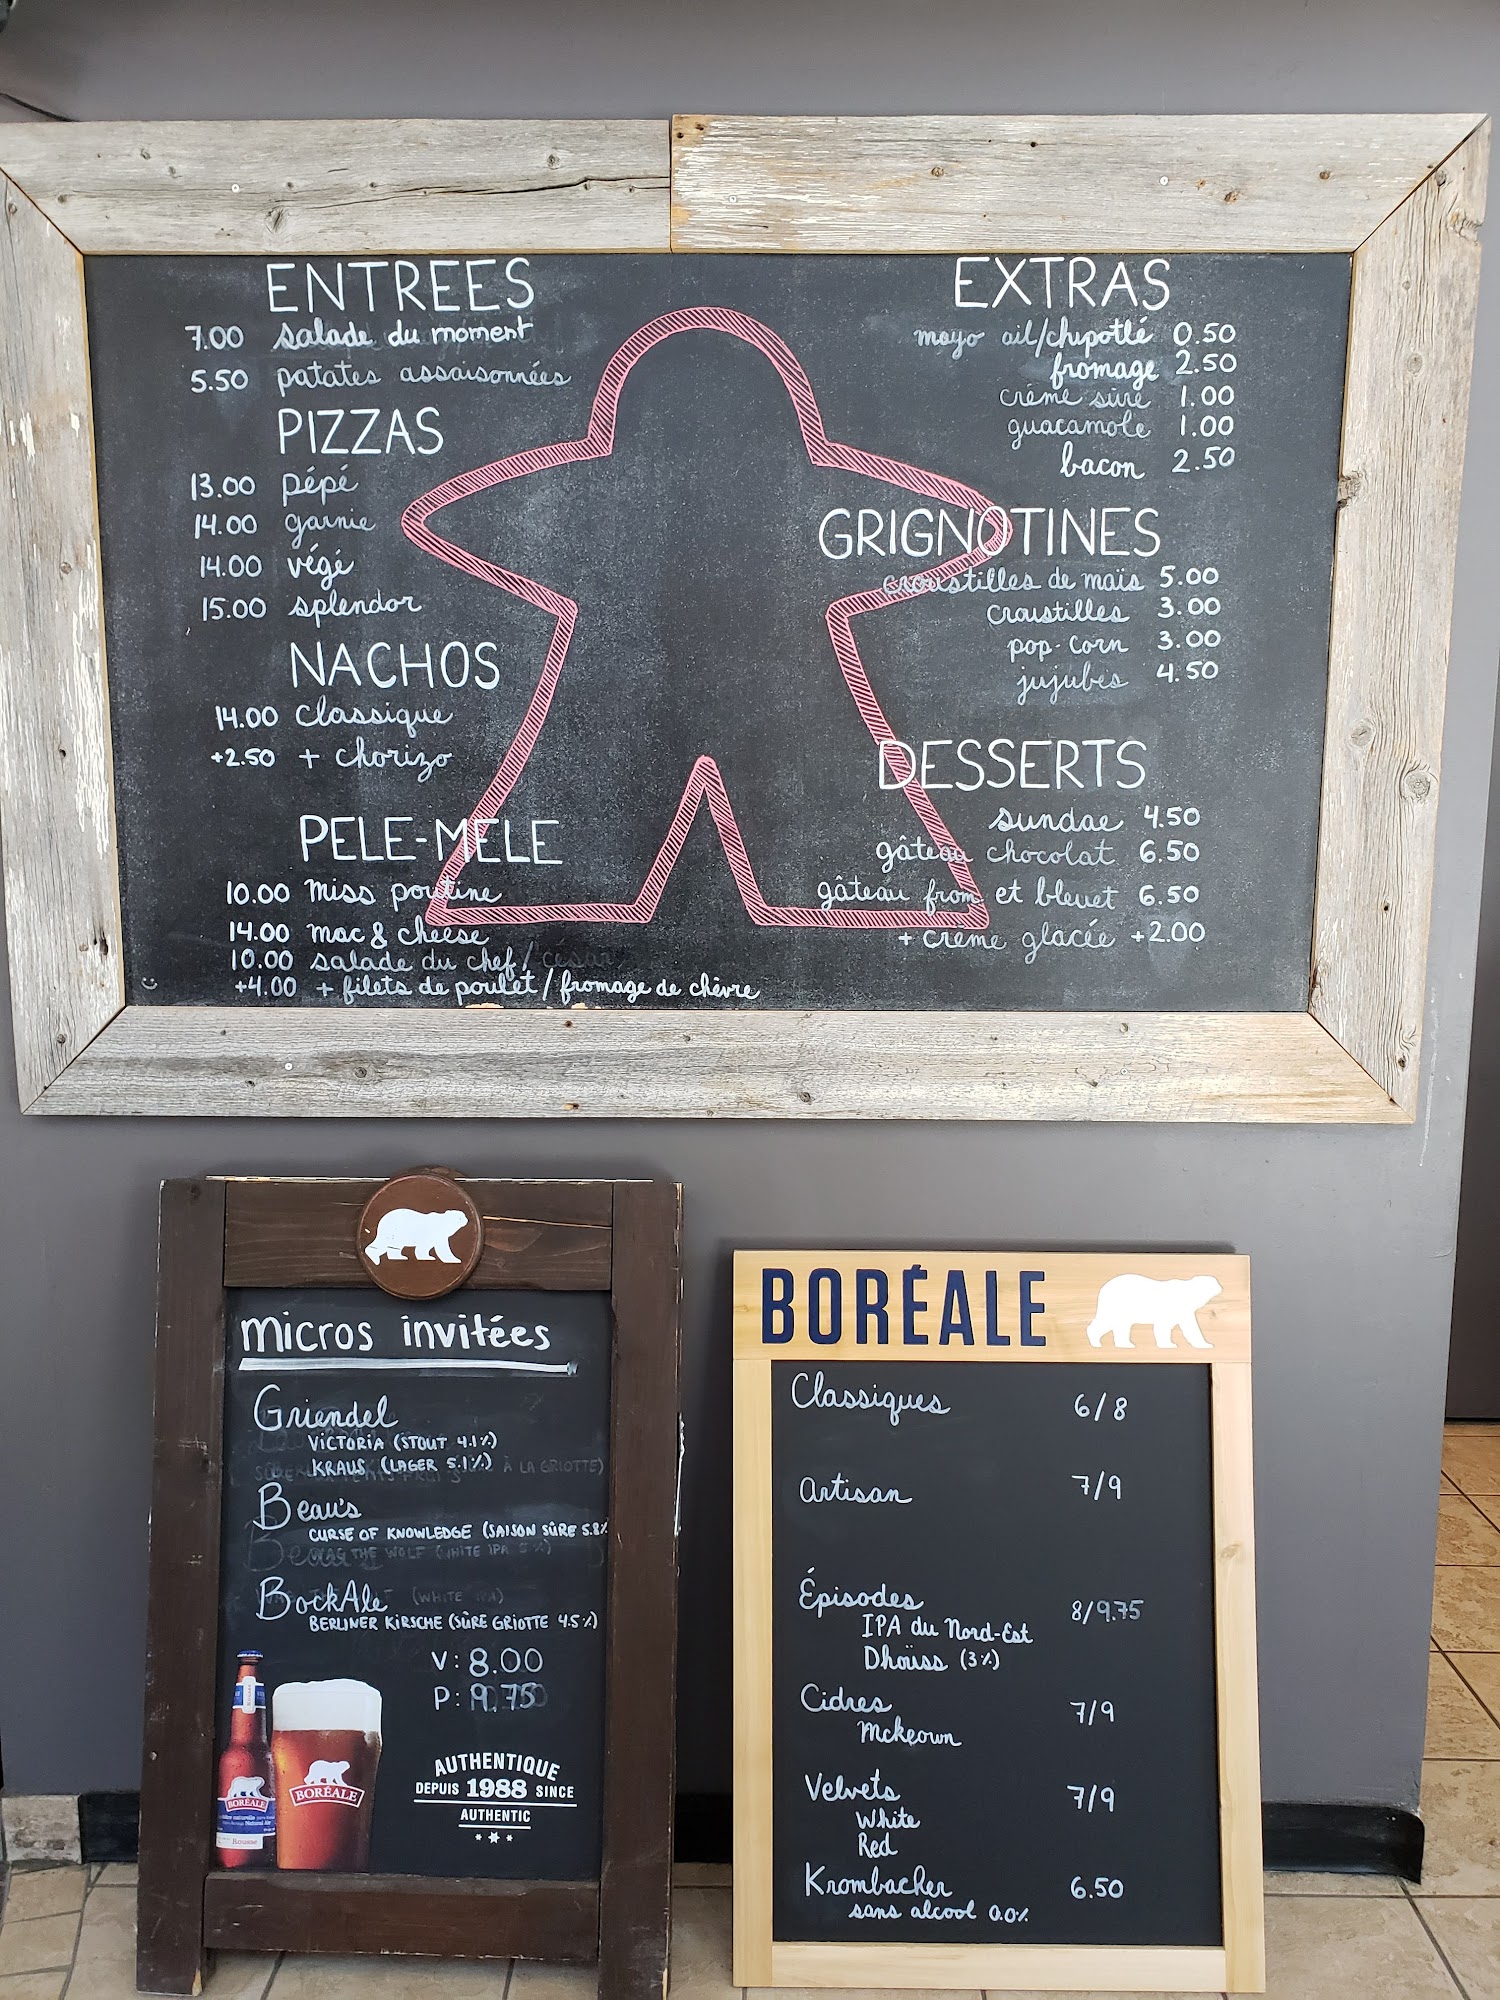 ENTREES
7.00 salade du moment
5.50 patates assaisonnées
PIZZAS
13.00 pépé
14.00 garnie
14.00 végé
15.00 splendor
NACHOS
14.00 classique
+2.50 + chorizo
PELE-MELE
10.00 miss poutine
14.00 mac & cheese
10.00 salade du chef / césar
+4.00 + filets de poulet / fromage de chèvre
EXTRAS
mayo ail/chipotlé 0.50
fromage 2.50
crème sûre 1.00
guacamole 1.00
bacon 2.50
GRIGNOTINES
croustilles de maïs 5.00
croustilles 3.00
pop-corn 3.00
jujubes 4.50
DESSERTS
sundae 4.50
gâteau chocolat 6.50
gâteau from et bleuet 6.50
+ crème glacée +2.00
micros invitées
Griendel
VICTORIA (STOUT 4.1%)
KRAUS (LAGER 5.1%)
Beau's
CURSE OF KNOWLEDGE (SAISON SÛRE 5.8%
BockAle
BERLINER KIRSCHE (SÛRE GRIOTTE 4.5%)
V: 8.00
P: 9.75
BORÉALE
Rousse
BORÉALE
AUTHENTIQUE
DEPUIS 1988 SINCE
AUTHENTIC
BORÉALE
Classiques 6/8
Artisan 7/9
Épisodes 8/9.75
IPA du Nord-Est
Dhöuss (3%)
Cidres 7/9
Mckeown
Velvets 7/9
White
Red
Krombacher 6.50
sans alcool 0.0%